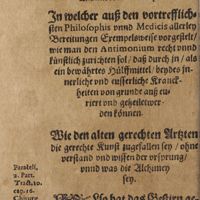 In welcher auß den vortrefflich-
sten Philosophis vnnd Medicis allerley
Bereitungen Exempelsweise vorgestelt/
wie man den Antimonium recht vnnd
künstlich zurichten sol/ daß durch in/ als
ein bewährtes Hülffmittel/ beydes in-
nerliche vnd eusserliche Kranck-
heiten von grunde auß cu-
riert vnd geheilet wer-
den können.
Wie den alten gerechten Artzten
die gerechte Kunst zugefallen sey / ohne
verstand vnd wissen der vrsprung/
vnnd was die Alchimey
sey.
Paracels.
2. Part.
Tract. 10.
cap. 16.
Chirurg.
Es hat das Gestirn ge-